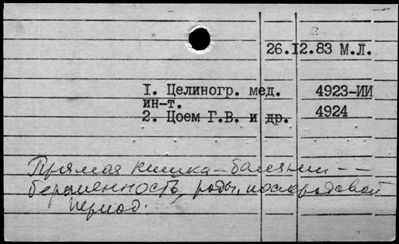 26.12.83 М.Л.
1. Целиногр. мед. 4923-ИИ
ин-т.
2. Цоем Г.В. и др. 4924
Прямая кишка - болезни --
беременность, роды, послеродовой
период.